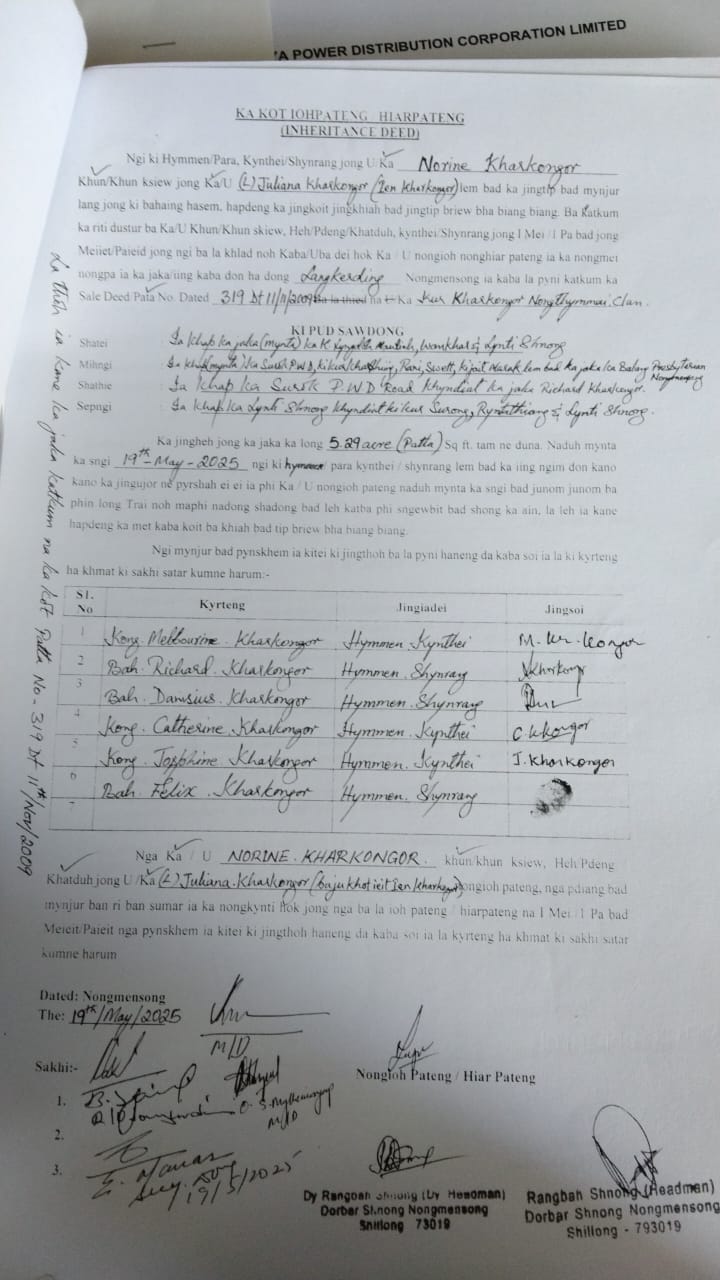 A POWER DISTRIBUTION CORPORATION LIMITED
KA KOT IOHPATENG HIARPATENG
(INHERITANCE DEED)
Ngi ki Hymmen/Para, Kynthei/Shynrang jong U/Ka Norine Kharkongor
Khun/Khun ksiew jong Ka/U (L) Juliana Kharkongor (Ien Kharkongor) lem bad ka jingtip bad mynjur
lang jong ki bahaing hasem, hapdeng ka jingkoit jingkhiah bad jingtip briew bha biang biang. Ba katkum
ka riti dustur ba Ka/U Khun/Khun skiew, Heh/Pdeng/Khatduh, kynthei/Shynrang jong I Mei / I Pa bad jong
Meiiet/Paieid jong ngi ba la khlad noh Kaba/Uba dei hok Ka / U nongioh nonghiar pateng ia ka nongmei
nongpa ia ka jaka/iing kaba don ha dong Langkerding Nongmensong ia kaba la pyni katkum ka
Sale Deed Pata No. Dated 319 Dt 11/11/2009 Ka Kur Kharkongor Nongthymmai Clan.
KI PUD SAWDONG
Shatei : Ia khap ka jaka (mynta) ka K Lynti Shnong
Mihngi : Ia khap (mynta) ka Surok P.W.D, Rani, Swett, lem bad ka jaka ka Balang Presbyterian
Shathie : Ia khap ka Surok P.W.D Road khyndiat ka jaka Richard Kharkongor.
Sepngi : Ia khap ka Lynti Shnong khyndiat ki kur Surong, & Lynti Shnong.
Ka jingheh jong ka jaka ka long 5.29 acre (Patta) Sq ft. tam ne duna. Naduh mynta
ka sngi 19th-May-2025 ngi ki hymmen para kynthei / shynrang lem bad ka iing ngim don kano
kano ka jingujor ne pyrshah ei ei ia phi Ka / U nongioh pateng naduh mynta ka sngi bad junom junom ba
phin long Trai noh maphi nadong shadong bad leh katba phi sngewbit bad shong ka ain, la leh ia kane
hapdeng ka met kaba koit ba khiah bad tip briew bha biang biang.
Ngi mynjur bad pynskhem ia kitei ki jingthoh ba la pyni haneng da kaba soi ia la ki kyrteng
ha khmat ki sakhi satar kumne harum:-
Sl. No Kyrteng Jingiadei Jingsoi
1 Kong. Melbourine. Kharkongor Hymmen Kynthei M. Kr. kongor
2 Bah. Richard. Kharkongor Hymmen Shynrang Kharkongor
3 Bah. Danisius. Kharkongor Hymmen Shynrang
4 Kong. Catherine. Kharkongor Hymmen Kynthei C. Kkongor
5 Kong. Josphine. Kharkongor Hymmen. Kynthei J. Kharkongor
6 Bah. Felix. Kharkongor Hymmen. Shynrang
7
Nga Ka / U NORINE. KHARKONGOR. khun/khun ksiew, Heh Pdeng
Khatduh jong U /Ka (L) Juliana. Kharkongor (baju khot ieit Ien Kharkongor) nongioh pateng, nga pdiang bad
mynjur ban ri ban sumar ia ka nongkynti hok jong nga ba la ioh pateng / hiarpateng na I Mei / I Pa bad
Meieit/Paieit nga pynskhem ia kitei ki jingthoh haneng da kaba soi ia la kyrteng ha khmat ki sakhi satar
kumne harum
La thoh ia kane ka jaka katkum na ka kot Patta No-319 Dt 11th/Nov/2009
Dated: Nongmensong
The: 19th/May/2025
M/D
Sakhi:-
Nongioh Pateng / Hiar Pateng
1.
M/D
2.
3.
19/5/2025
Dy Rangbah Shnong (Dy Headman)
Dorbar Shnong Nongmensong
Shillong 73019
Rangbah Shnong (Headman)
Dorbar Shnong Nongmensong
Shillong - 793019